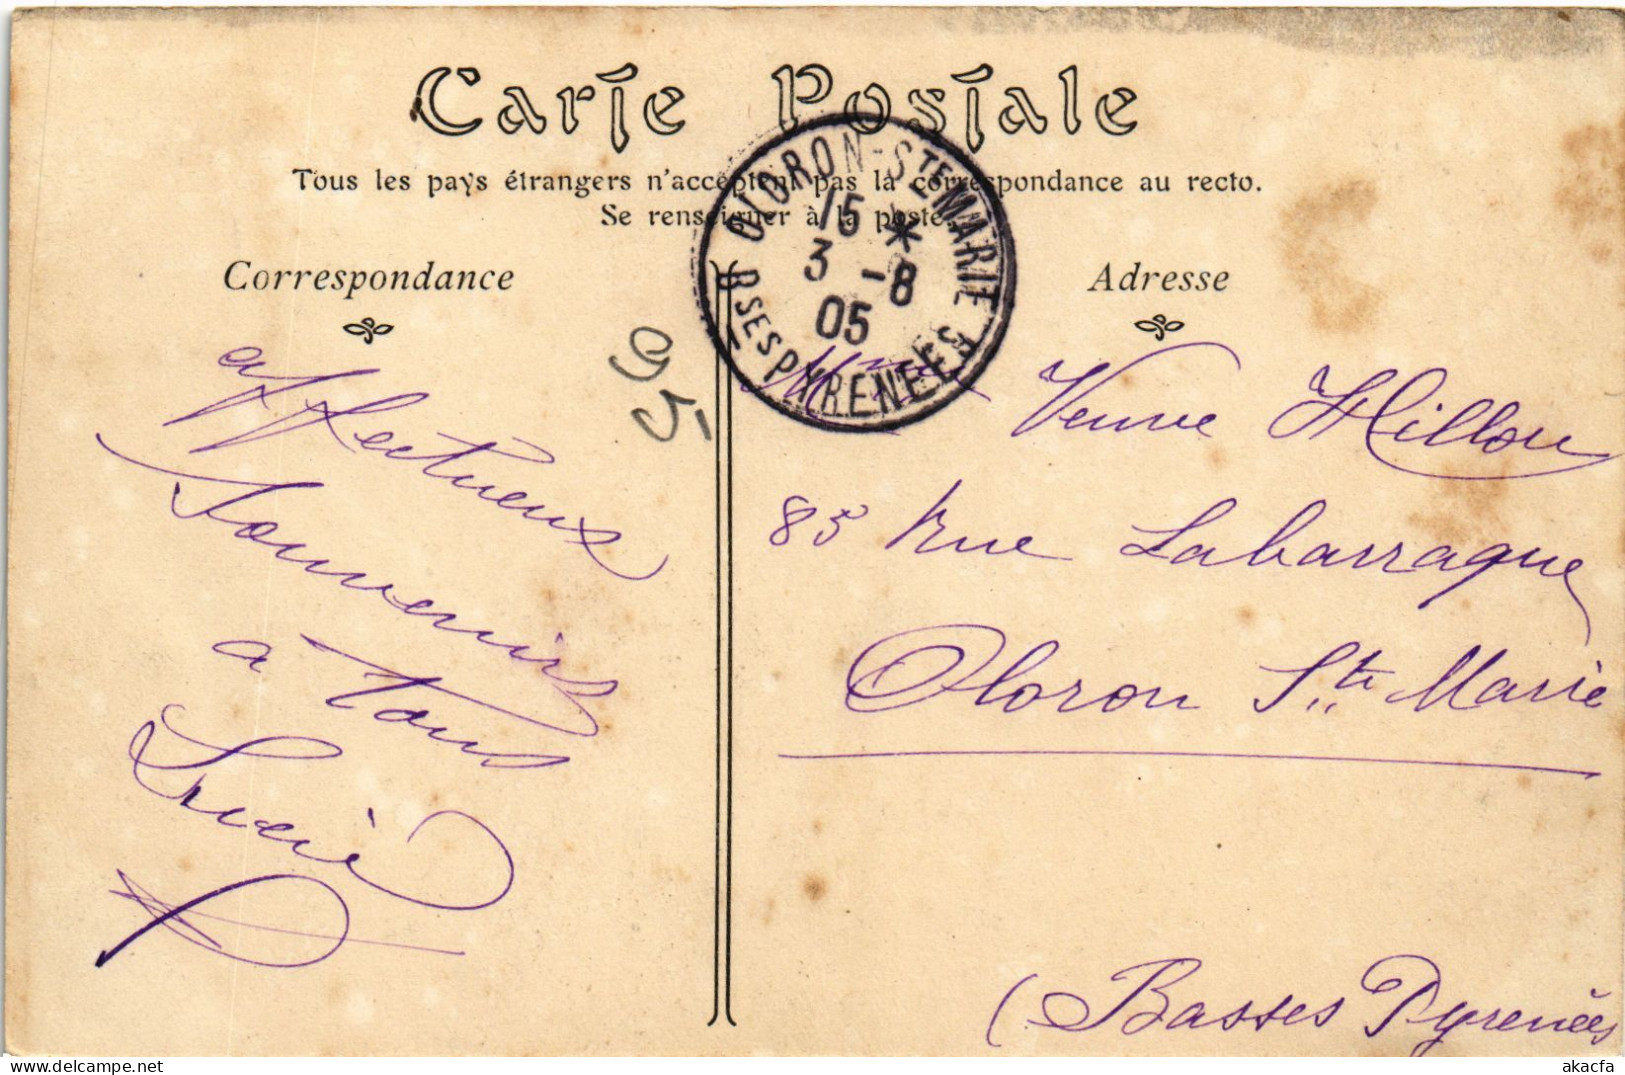 Carte Postale
Tous les pays étrangers n'acceptent pas la correspondance au recto.
Se renseigner à la poste.
Correspondance
Adresse
OLORON-STE MARIE
15 *
3 -8
05
BSES PYRENEES
95
affectueux
souvenirs
a tous
Lucie
Mme Veuve Millou
85 Rue Labarraque
Oloron Ste Marie
(Basses Pyrenées
www.delcampe.net
akacfa